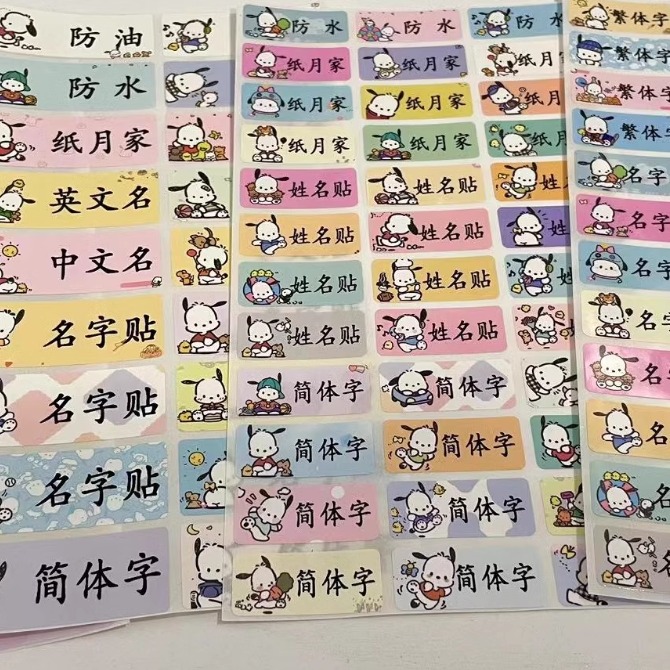 防油
防水
纸月家
英文名
中文名
名字贴
名字贴
名字贴
简体字
防水 防水 防水
纸月家 纸月家 纸月家
纸月家 纸月家 纸月家
纸月家 纸月家 纸月
姓名贴 姓名贴 姓名
姓名贴 姓名贴 姓名
姓名贴 姓名贴 姓
姓名贴 姓名贴
简体字 简体字
简体字 简体字
简体字 简体字
简体字 简体字
繁体字
繁体字
繁体字
繁体字
名字
名字
名字
名字
名
名
名
名